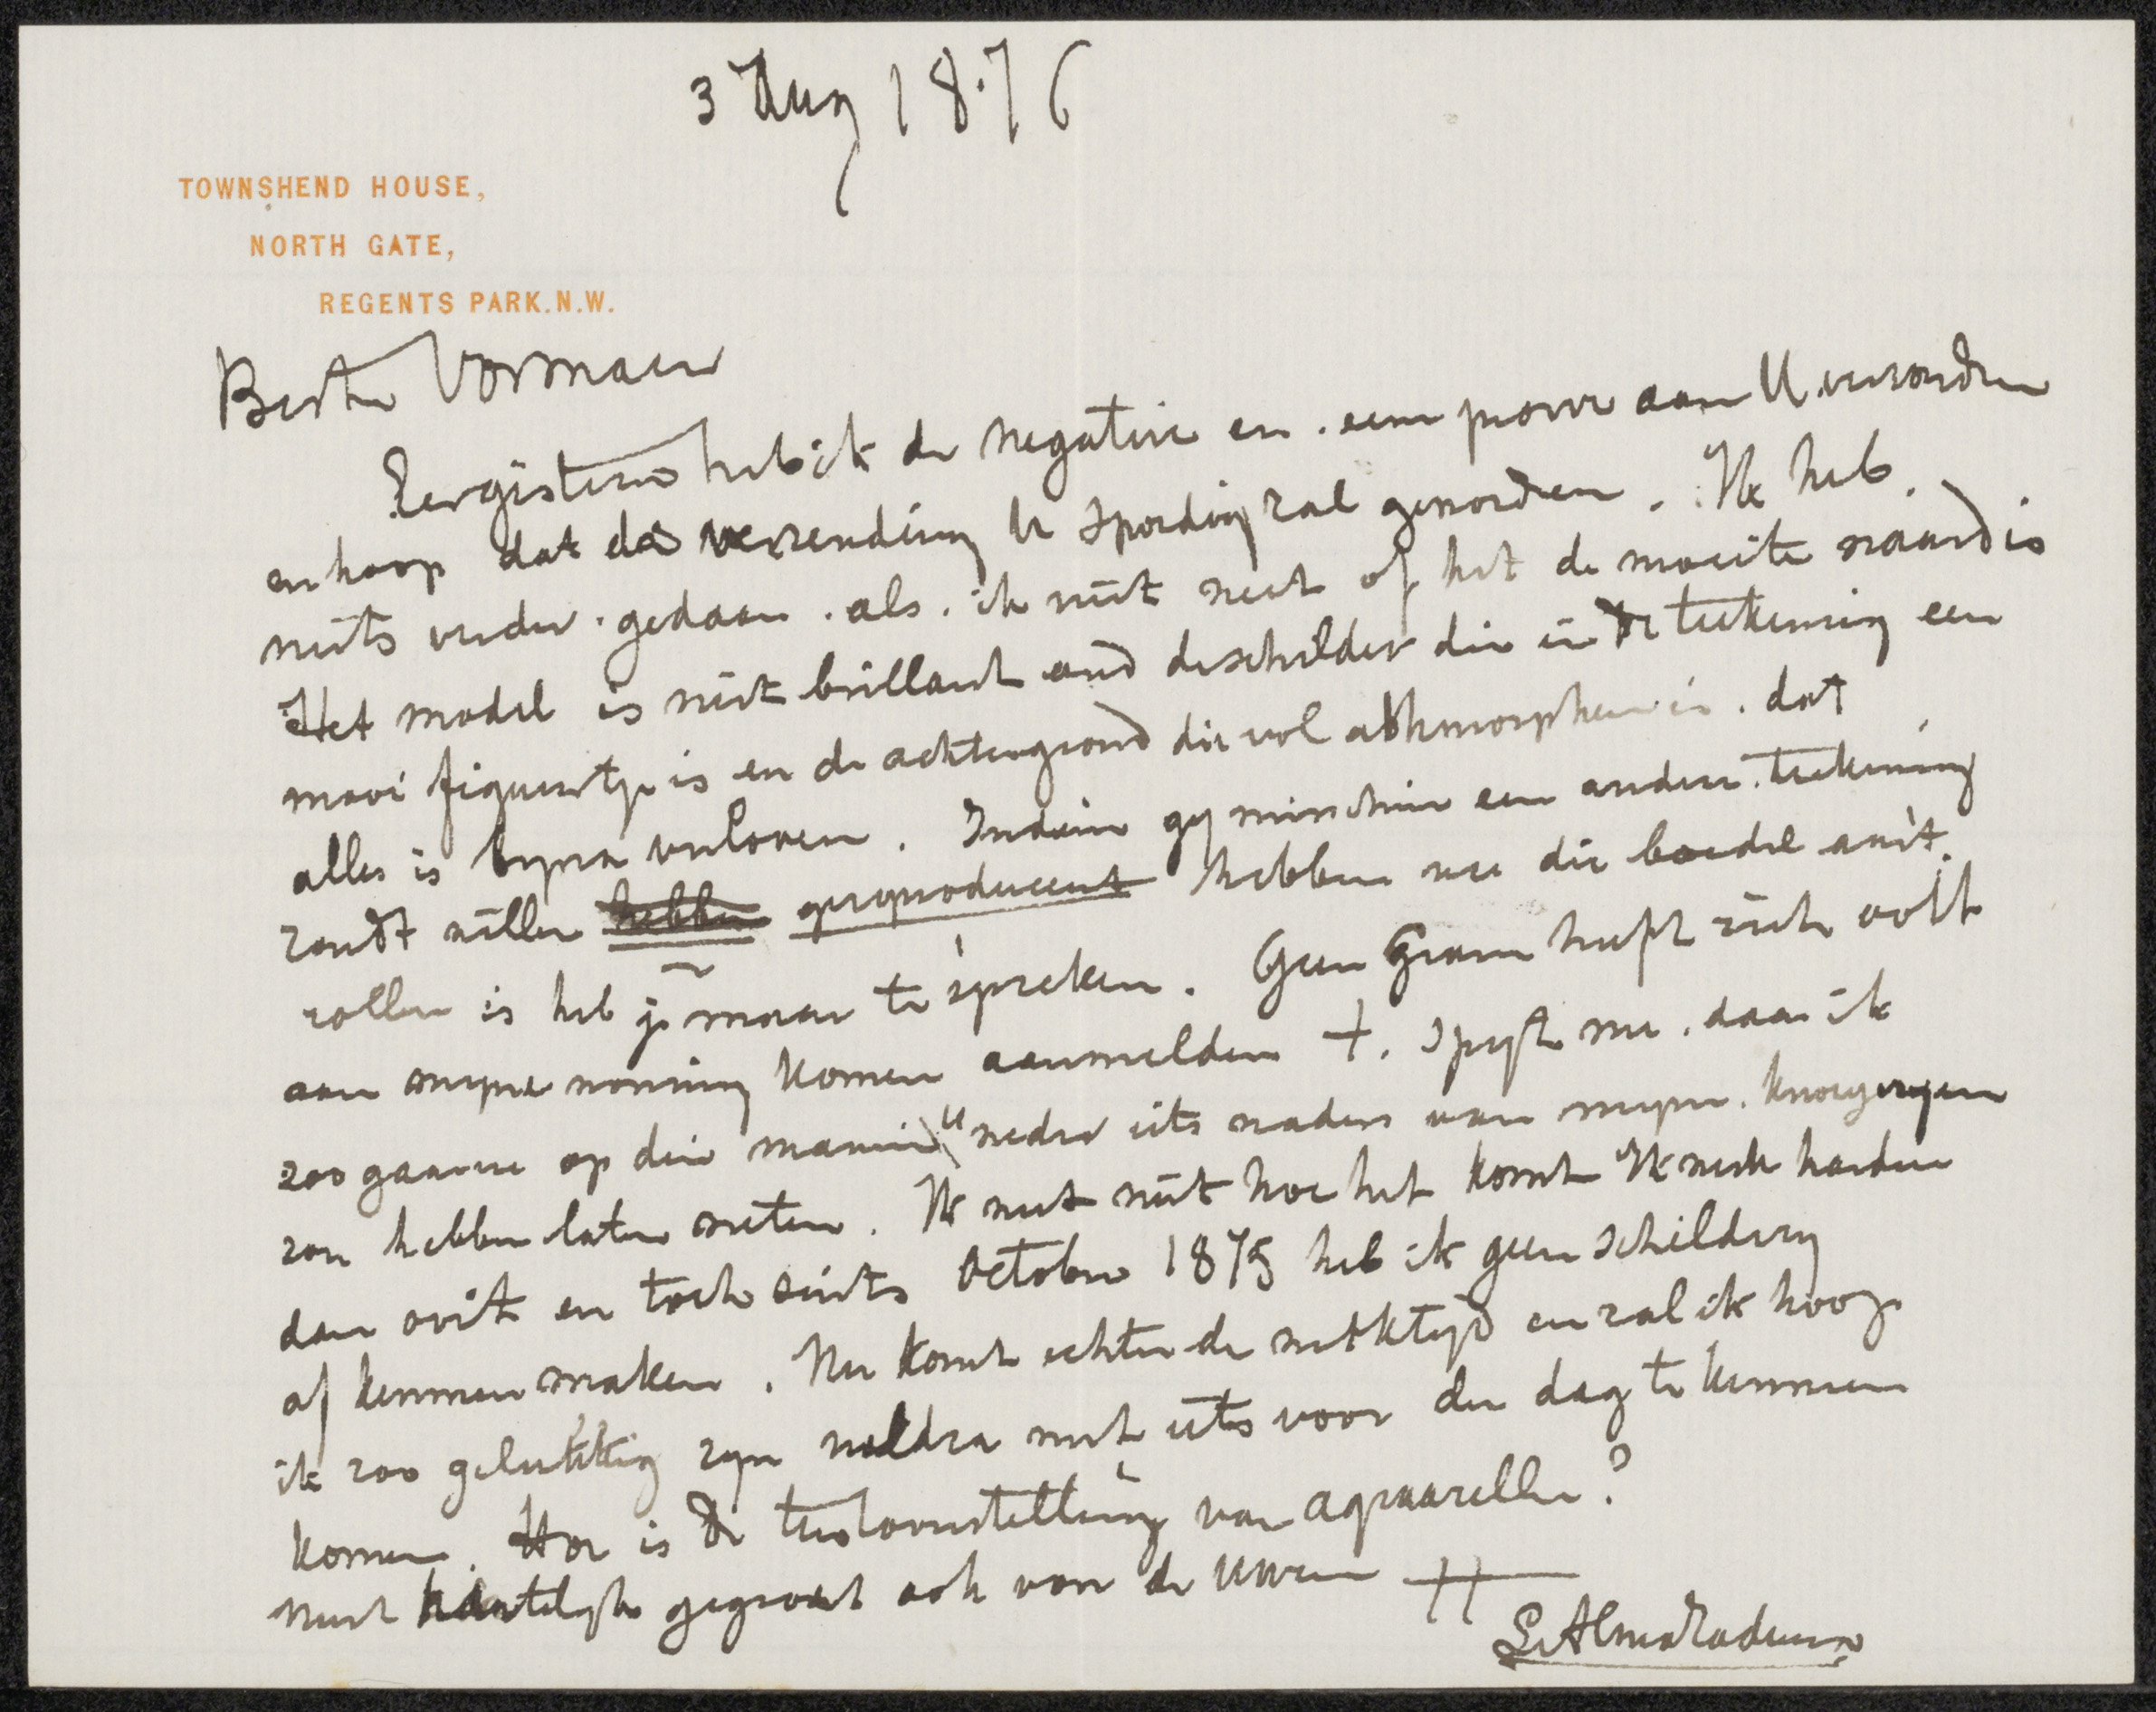 3 Aug 1876
TOWNSHEND HOUSE,
NORTH GATE,
REGENTS PARK.N.W.
Beste Vosmaer
Eergisteren heb ik de negative en een proeve aan U verzonden
en hoop dat de verzending U spoedig zal geworden. Ik heb
niets verder gedaan als ik niet weet of het de moeite waard is
Het model is niet brillant and de schilder die in de teekening een
mooi figuurtje is en de achtergrond die vol athmospheer is dat
alles is byna verloren. Indien gy misschien een andere teekening
zoudt willen hebben gereproduceerd hebben nu die boedel
rollen is heb je maar te spreken. Geen Gram heeft zich ooit
aan myne woning komen aanmelden +. Spyt me daar ik
zoo gaarne op die manier U weder iets naders van myne knoeyeryen
zou hebben laten weten. Ik weet niet hoe het komt Ik werk harder
dan ooit en toch sints October 1875 heb ik geen schildery
af kunnen maken. Nu komt echter de werktyd en zal ik hoop
ik zoo gelukkig zyn weldra met iets voor den dag te kunnen
komen. Hoe is de tentoonstelling van aquarellen?
Weest hartelyk gegroet ook van de uwen
L Alma Tadema